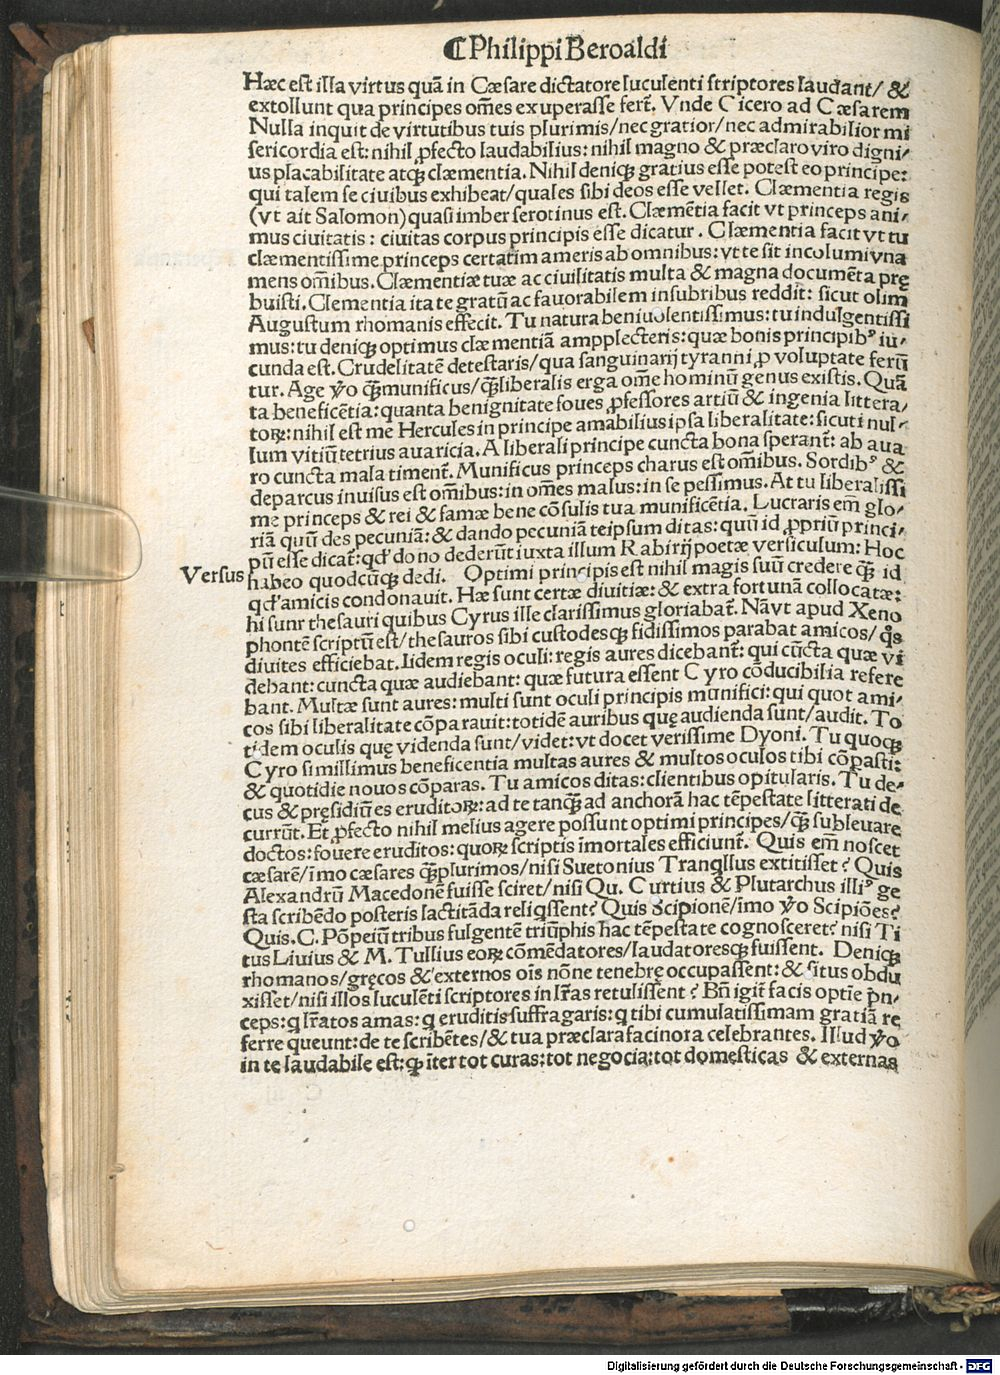 ⁋Philippi Beroaldi
Hæc est illa virtus quã in Cæsare dictatore luculenti scriptores laudant/ &
extollunt qua principes om̃es exuperasse fert̃. Vnde Cicero ad Cæsarem
Nulla inquit de virtutibus tuis plurimis/nec gratior/nec admirabilior mi
sericordia est: nihil ꝓfecto laudabilius: nihil magno & præclaro viro digni⸗
us placabilitate atqꝫ clæmentia. Nihil deniqꝫ gratius esse potest eo principe:
qui talem se ciuibus exhibeat/quales sibi deos esse vellet. Clæmentia regis
(vt ait Salomon)quasi imber serotinus est. Clæmẽtia facit vt princeps ani⸗
mus ciuitatis: ciuitas corpus principis esse dicatur. Clæmentia facit vt tu
clæmentissime princeps certatim ameris ab omnibus: vt te sit incolumi vna
mens om̃ibus. Clæmentiæ tuæ ac ciuilitatis multa & magna documẽta prę
buisti. Clementia ita te gratũ ac fauorabilem insubribus reddit: sicut olim
Augustum rhomanis effecit. Tu natura beniuolentissimus: tu indulgentissi
mus: tu deniqꝫ optimus clæmentiã ampplecteris: quæ bonis principibꝰ iu⸗
cunda est. Crudelitatẽ detestaris/qua sanguinarij tyranni ꝓ voluptate ferũ
tur. Age v̊o qꝫ̃munificus/qꝫ̃liberalis erga om̃e hominũ genus existis. Quã
ta beneficẽtia: quanta benignitate foues ꝓfessores artiũ & ingenia littera⸗
toꝝ: nihil est me Hercules in principe amabilius ipsa liberalitate: sicuti nul⸗
lum vitiũ tetrius auaricia. A liberali principe cuncta bona sperant̃: ab aua
ro cuncta mala timent̃. Munificus princeps charus est om̃ibus. Sordibꝰ &
deparcus inuisus est om̃ibus: in om̃es malus: in se pessimus. At tu liberalissi
me princeps & rei & famæ bene cõsulis tua munificẽtia. Lucraris em̃ glo⸗
riã quũ des pecuniã: & dando pecuniã teipsum ditas: quũ id ꝓpriũ princi⸗
pũ esse dicat̃: qd' dono dederũt iuxta illum Rabirij poetæ versiculum: Hoc
Versus habeo quodcũqꝫ dedi. Optimi principis est nihil magis suũ credere qꝫ̃ id
qd' amicis condonauit. Hæ sunt certæ diuitiæ: & extra fortunã collocatæ:
hi sunr thesauri quibus Cyrus ille clarissimus gloriabat̃. Nã vt apud Xeno
phontẽ scriptũ est/thesauros sibi custodesqꝫ fidissimos parabat amicos/ q̊s
diuites efficiebat. Iidem regis oculi: regis aures dicebant̃: qui cũcta quæ vi
debant: cuncta quæ audiebant: quæ futura essent Cyro cõducibilia refere
bant. Multæ sunt aures: multi sunt oculi principis munifici: qui quot ami⸗
cos sibi liberalitate cõparauit: totidẽ auribus quę audienda sunt/audit. To
tidem oculis quę videnda sunt/videt: vt docet verissime Dyoni. Tu quoqꝫ
Cyro simillimus beneficentia multas aures & multos oculos tibi cõpasti:
& quotidie nouos cõparas. Tu amicos ditas: clientibus opitularis. Tu de⸗
cus & pręsidiũ es eruditoꝝ: ad te tanqꝫ̃ ad anchorã hac tẽpestate litterati de
currũt. Et ꝓfecto nihil melius agere possunt optimi principes/qꝫ̃ subleuare
doctos: fouere eruditos: quoꝝ scriptis īmortales efficiunt̃. Quis em̃ noscet
cæsarẽ/īmo cæsares qꝫ̃plurimos/nisi Suetonius Tranqllus extitisset? Quis
Alexandrũ Macedonẽ fuisse sciret/nisi Qu. Curtius & Plutarchus illiꝰ ge
sta scribẽdo posteris lactitãda reliqssent? Quis Scipionẽ/īmo v̊o Scipiões?
Quis. C. Põpeiũ tribus fulgentẽ triũphis hac tẽpestate cognosceret? nisi Ti
tus Liuius & M. Tullius eoꝝ cõmẽdatores/laudatoresqꝫ fuissent. Deniqꝫ
rhomanos/gręcos & externos oĩs nõne tenebrę occupassent: & situs obdu
xisset/nisi illos luculẽti scriptores in lr̃as retulissent? Bñ igit̃ facis optĩe p̃n⸗
ceps: q lr̃atos amas: q eruditis suffragaris: q tibi cumulatissimam gratiã re
ferre queunt: de te scribẽtes/& tua præclara facinora celebrantes. Illud v̊o
in te laudabile est: ꝙ īter tot curas: tot negocia: tot domesticas & externas
Digitalisierung gefördert durch die Deutsche Forschungsgemeinschaft - DFG